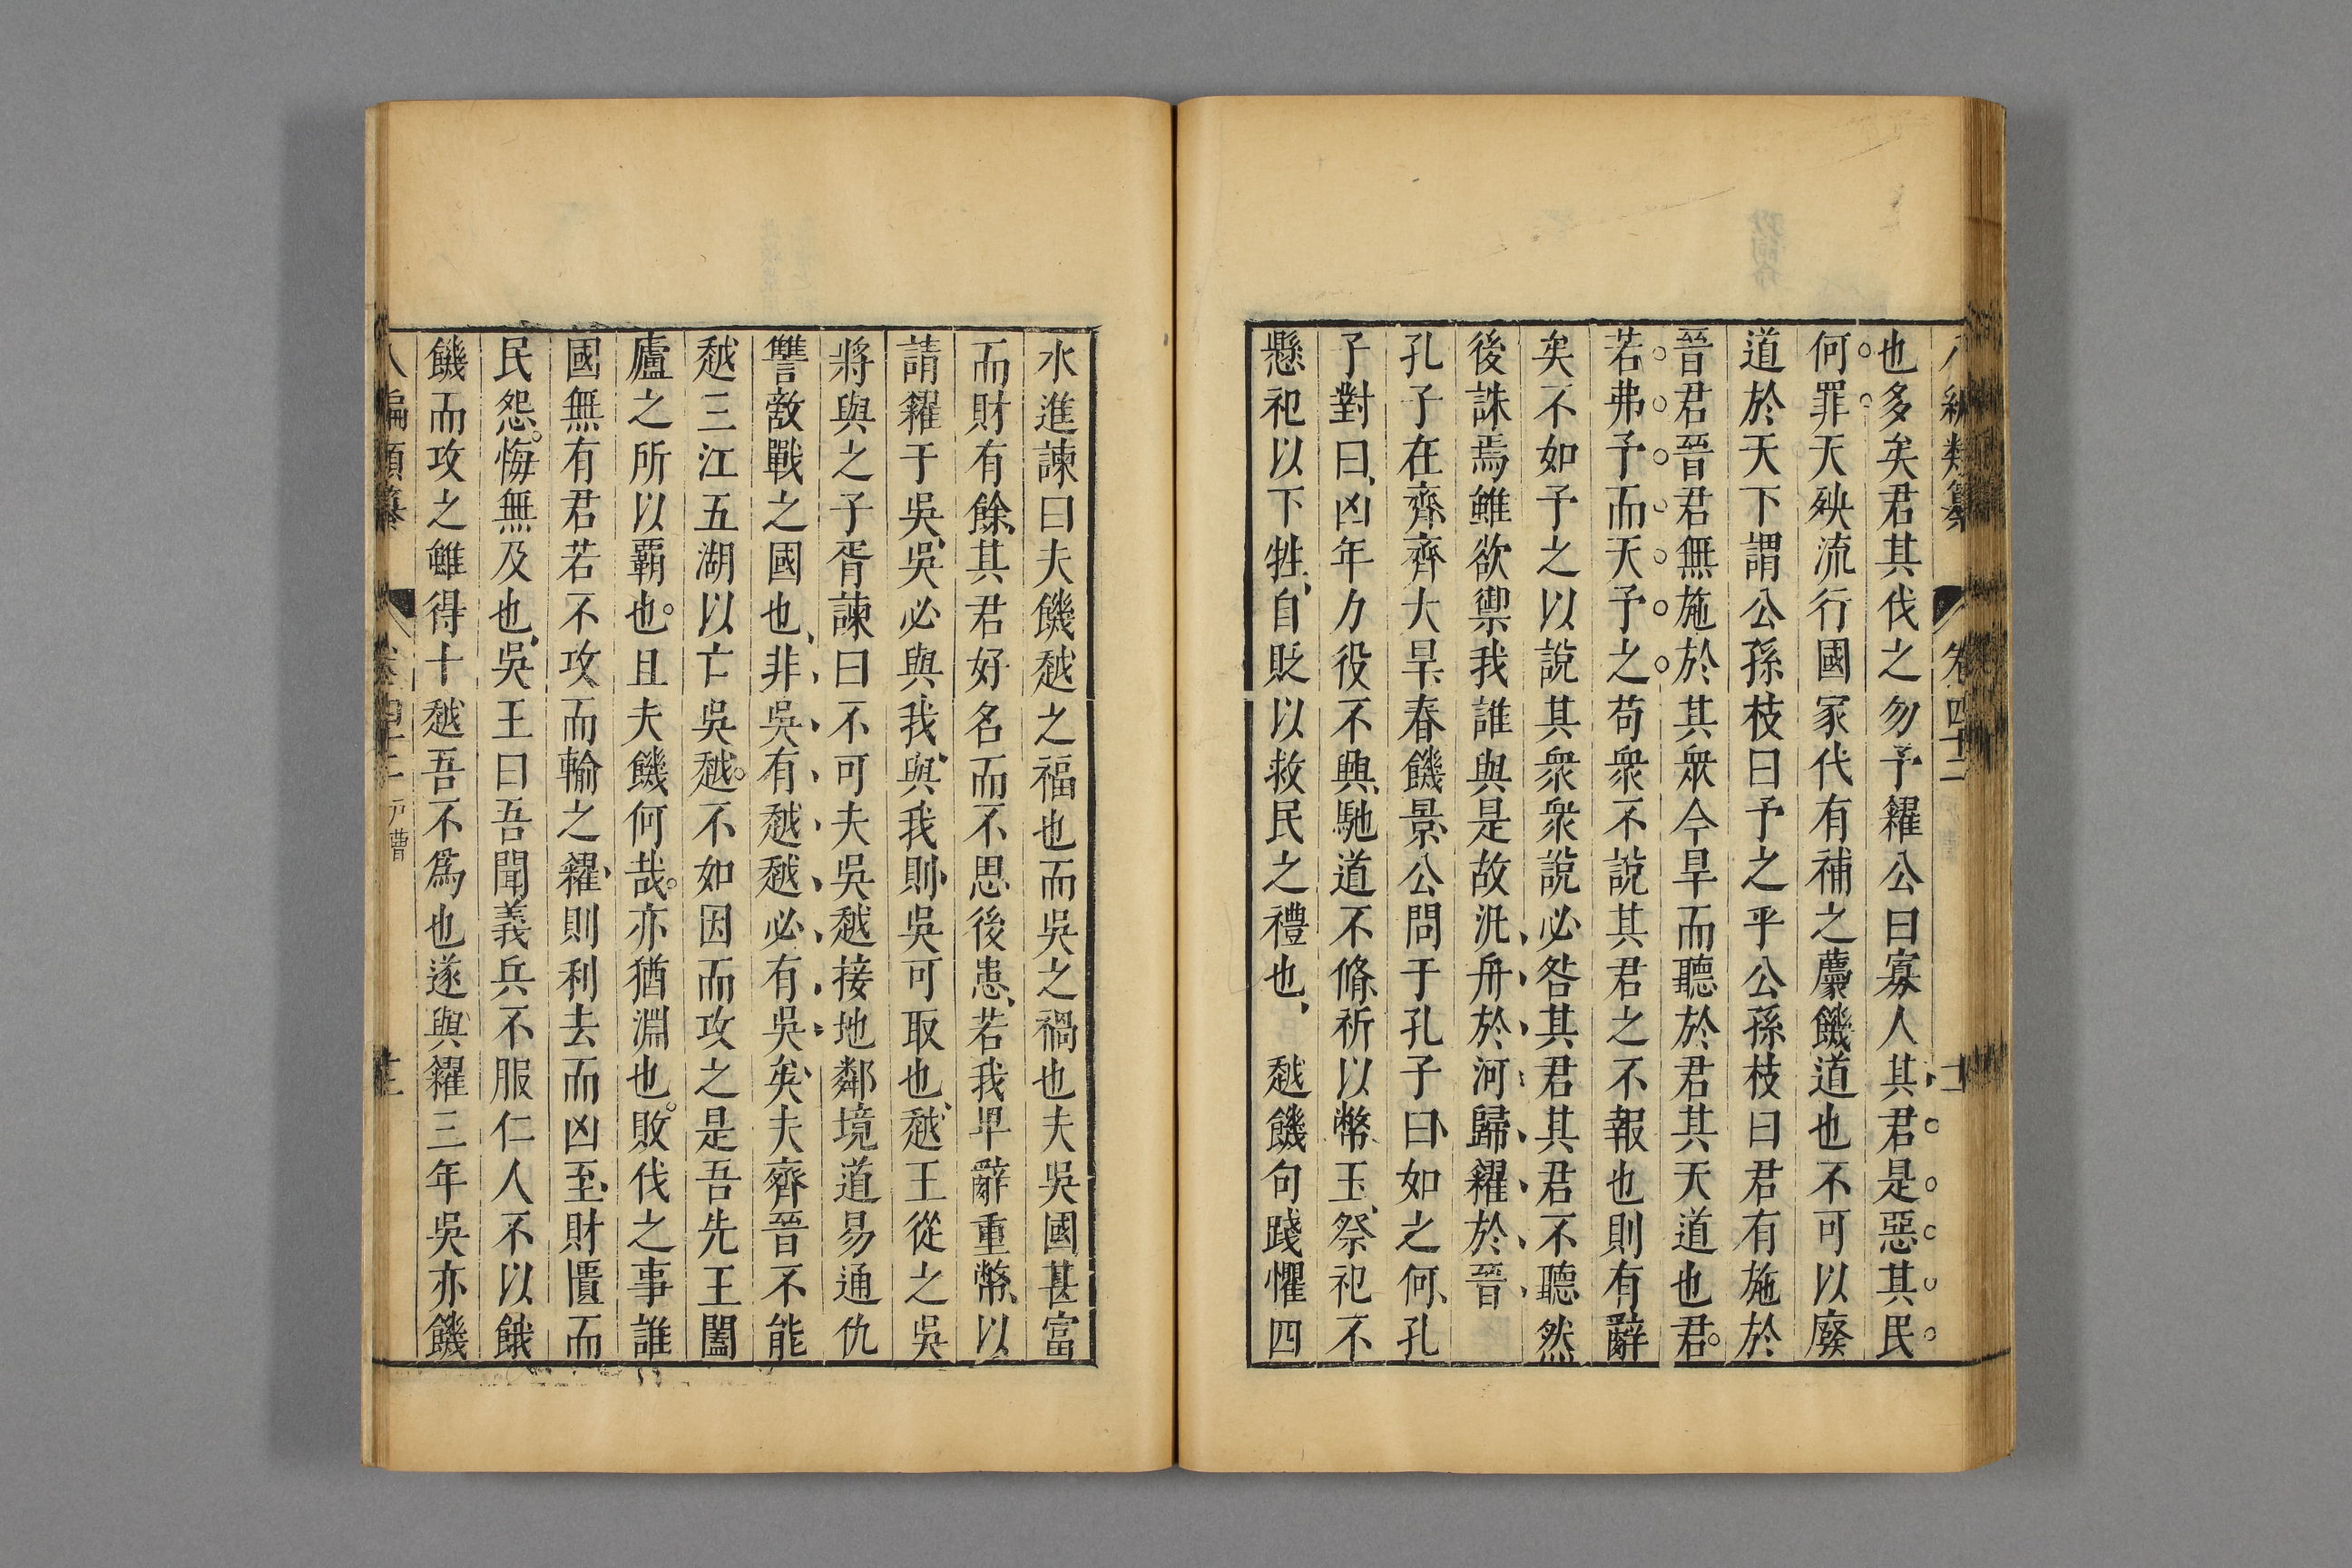 八編類纂 卷四十二
也多矣君其伐之勿予糴公曰寡人其君是惡其民
何罪天殃流行國家代有補之薦饑道也不可以廢
道於天下謂公孫枝曰予之乎公孫枝曰君有施於
晉君晉君無施於其眾今旱而聽於君其天道也君
若弗予而天予之苟衆不說其君之不報也則有辭
矣不如予之以說其衆衆說必咎其君其君不聽然
後誅焉雖欲禦我誰與是故汎舟於河歸糴於晉
孔子在齊齊大旱春饑景公問于孔子曰如之何孔
子對曰凶年力役不興馳道不脩祈以幣玉祭祀不
懸祀以下牲自貶以救民之禮也 越饑句踐懼四
水進諫曰夫饑越之福也而吳之禍也夫吳國甚富
而財有餘其君好名而不思後患若我卑辭重幣以
請糴于吳吳必與我與我則吳可取也越王從之吳
將與之子胥諫曰不可夫吳越接地鄰境道易通仇
讐敵戰之國也非吳有越越必有吳矣夫齊晉不能
越三江五湖以亡吳越不如因而攻之是吾先王闔
廬之所以覇也且夫饑何哉亦猶淵也敗伐之事誰
國無有君若不攻而輸之糴則利去而凶至財匱而
民怨悔無及也吳王曰吾聞義兵不服仁人不以餓
饑而攻之雖得十越吾不為也遂與糴三年吳亦饑
八編類纂 卷四十二 戶曹